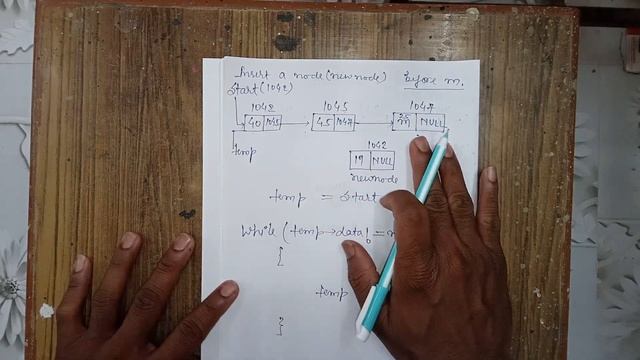 Insert a node (newnode) before m.
start (1042)
1042 1045 1047
40 1045 45 1047 m NULL
temp
1042
19 NULL
newnode
temp = start
While (temp→data! =
{
temp
}